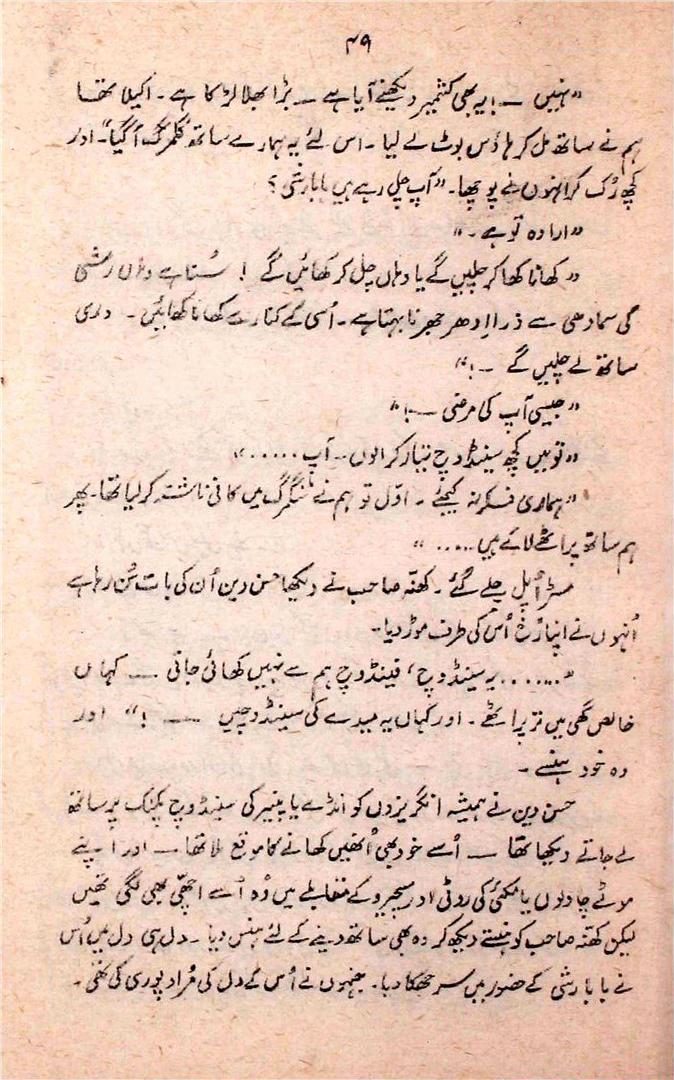 ۴۹
"نہیں — ! یہ بھی کشمیر دیکھنے آیا ہے — بڑا بھلا لڑکا ہے ۔ اکیلا تھا
ہم نے ساتھ مل کر ہاؤس بوٹ لے لیا ۔ اس لئے یہ ہمارے ساتھ گلمرگ آ گیا" اور
کچھ رُک کر انہوں نے پوچھا ۔ "آپ چل رہے ہیں بابا رشی؟
"ارادہ تو ہے ۔"
"کھانا کھا کر چلیں گے یا وہاں چل کر کھائیں گے ! سُنا ہے وہاں رشی
کی سمادھی سے ذرا اِدھر جھرنا بہتا ہے ۔ اُسی کے کنارے کھانا کھائیں ۔ دری
ساتھ لے چلیں گے — !"
"جیسی آپ کی مرضی — !"
"تو میں کچھ سینڈوچ تیار کرا لوں ۔ آپ ....."
"ہماری فکر نہ کیجئے ۔ اوّل تو ہم نے ٹنگمرگ میں کافی ناشتہ کر لیا تھا ۔ پھر
ہم ساتھ پراٹھے لائے ہیں ....."
مسٹر اُپل چلے گئے ۔ کھنّہ صاحب نے دیکھا حسن دین اُن کی بات سُن رہا ہے
اُنہوں نے اپنا رُخ اُس کی طرف موڑ دیا ۔
"...... یہ سینڈوچ ، فینڈوچ ہم سے نہیں کھائی جاتی — کہاں
خالص گھی میں تر پراٹھے ۔ اور کہاں یہ میدے کی سینڈوچیں — !" اور
وہ خود ہنسے ۔
حسن دین نے ہمیشہ انگریزوں کو انڈے یا پنیر کی سینڈوچ پکنک پر ساتھ
لے جاتے دیکھا تھا — اُسے خود بھی اُنھیں کھانے کا موقع ملا تھا — اور اپنے
موٹے چاولوں یا مکئی کی روٹی اور کے مقابلے میں وُہ اُسے اچھی بھی لگی تھیں
لیکن کھنّہ صاحب کو ہنستے دیکھ کر وہ بھی ساتھ دینے کے لئے ہنس دیا ۔ دل ہی دل میں اُس
نے بابا رشی کے حضور میں سر جھکا دیا ۔ جنہوں نے اُس کے دل کی مُراد پوری کی تھی ۔